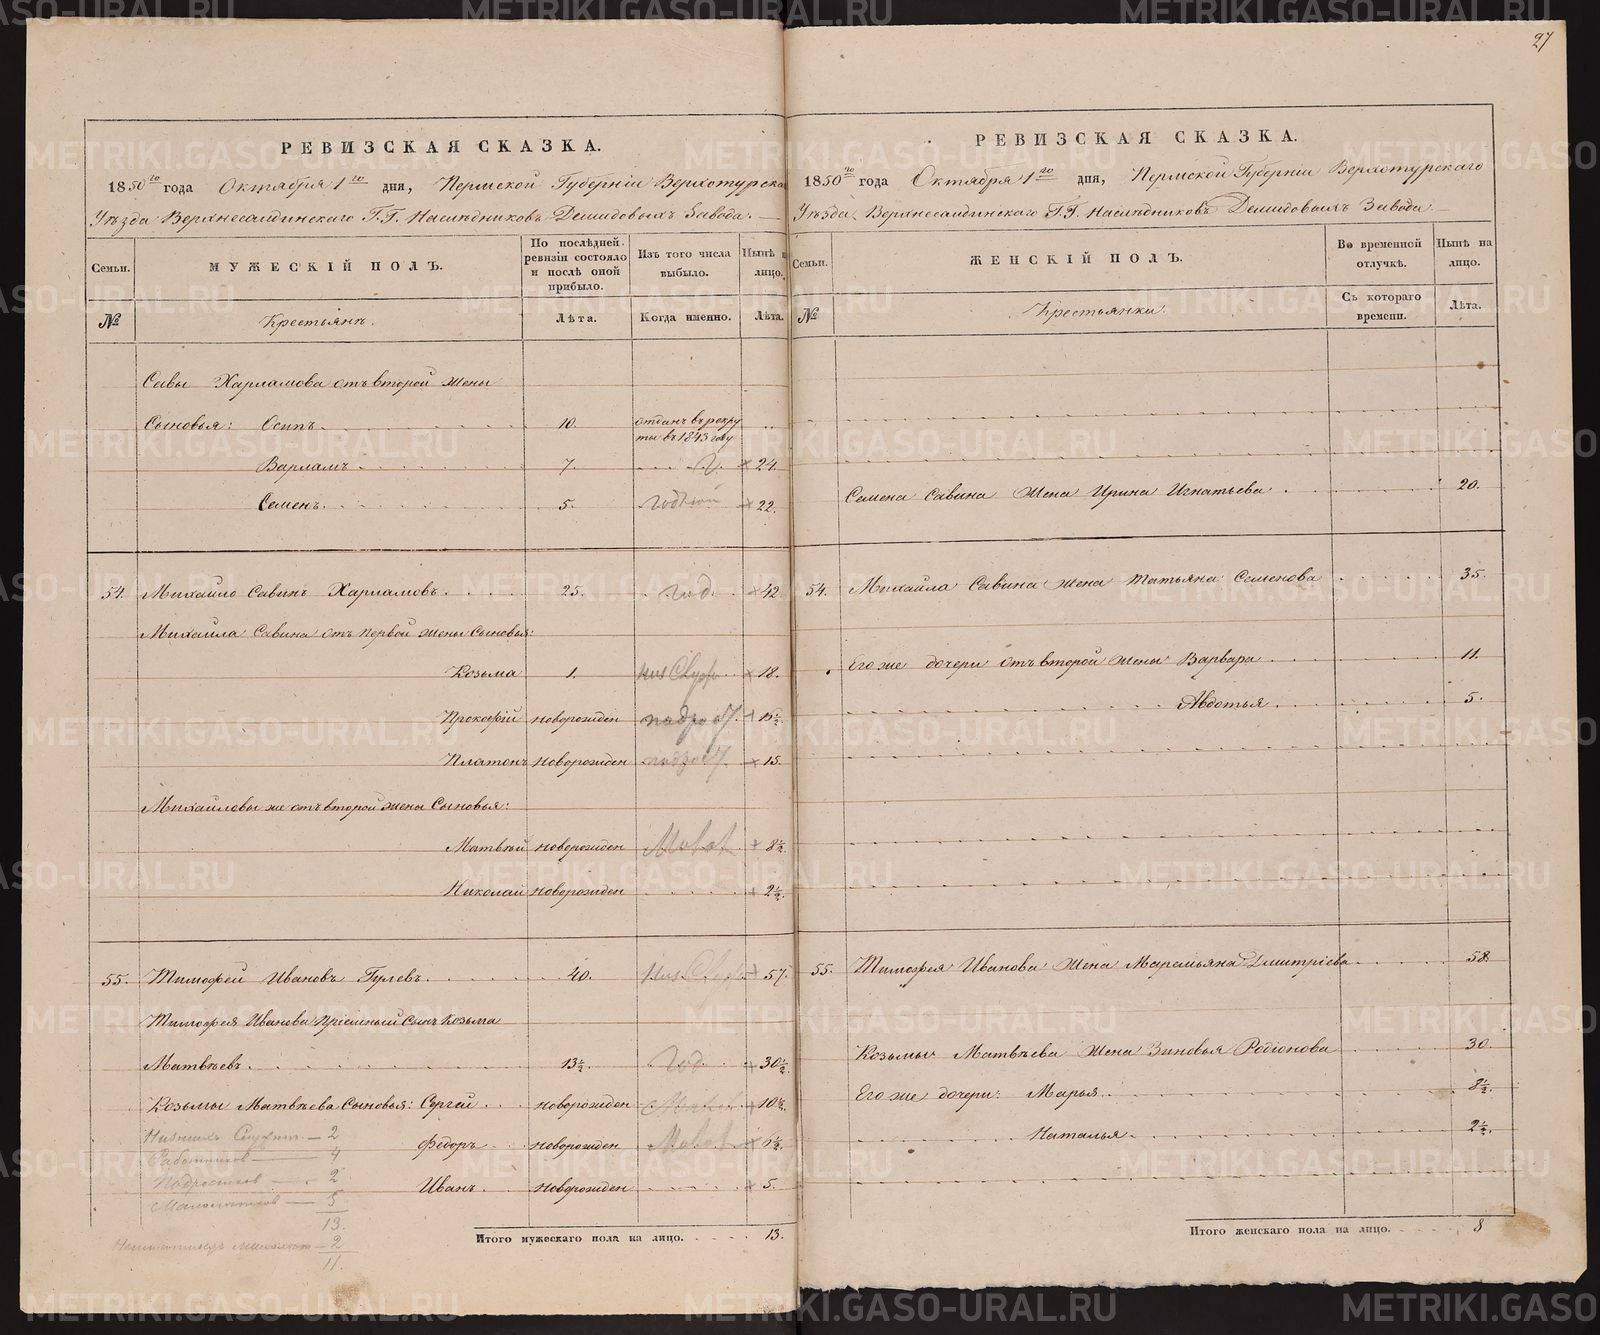 27
РЕВИЗСКАЯ СКАЗКА.
1850го года Октября 1го дня, Пермской Губерніи Верхотурска
Уѣзда Верхнесалдинскаго Г.Г. Наслѣдниковъ Демидовыхъ Завода.
Семьи.
МУЖЕСКІЙ ПОЛЪ.
По послѣдней ревизіи состояло и послѣ оной прибыло.
Изъ того числа выбыло.
Нынѣ н лицо.
№
Крестьянъ.
Лѣта.
Когда именно.
Лѣта.
Савы Харламова отъ второй жены
Сыновья: Осипъ 10. отданъ въ рекру
ты въ 1843 году
Варламъ 7. 24.
Семенъ 5. 22.
54. Михайло Савинъ Харламовъ 25. год 42
Михайла Савина отъ первой жены сыновья:
Козьма 1. 18.
Прокофій новорожден 15½
Платонъ новорожден 15.
Михайловы же отъ второй жены сыновья:
Матвѣй новорожден 8½
Николай новорожден 2½
55. Тимофей Ивановъ Гулевъ 40. 57.
Тимофея Иванова пріемный сынъ Козьма
Матвѣевъ 13½. год 30½
Козьмы Матвѣева сыновья: Сергей новорожден 10½
Федоръ новорожден 6½
Иванъ новорожден 5.
2
Работников 4
Подростков 2
Малолетков 5
13.
2
11.
Итого мужескаго пола на лицо. 13.
РЕВИЗСКАЯ СКАЗКА.
1850го года Октября 1го дня, Пермской Губерніи Верхотурскаго
Уѣзда Верхнесалдинскаго Г.Г. Наслѣдниковъ Демидовыхъ Завода
Семьи.
ЖЕНСКІЙ ПОЛЪ.
Во временной отлучкѣ.
Нынѣ на лицо.
№
Крестьянки.
Съ котораго времени.
Лѣта.
Семена Савина жена Ирина Игнатьева 20.
54. Михайла Савина жена Татьяна Семенова 35.
Его же дочери отъ второй жены Варвара 11.
Авдотья 5.
55. Тимофея Иванова жена Маремьяна Дмитріева 58
Козьмы Матвѣева жена Зиновья Родіонова 30
Его же дочери: Марья 8½.
Наталья 2½.
Итого женскаго пола на лицо. 8
METRIKI.GASO-URAL.RU